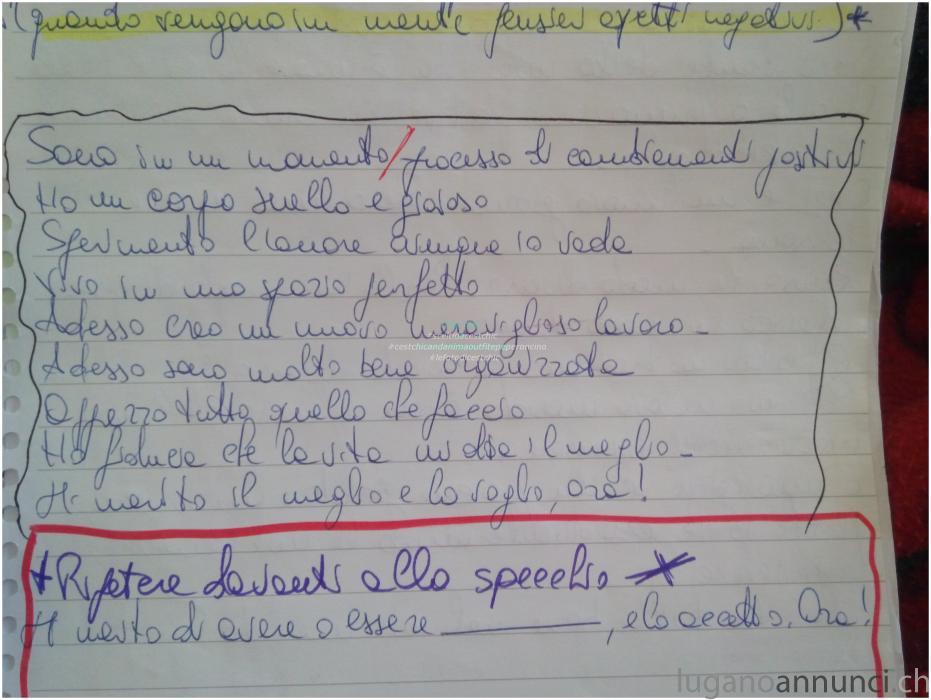 (quando vengono in mente pensieri aspetti negativi.)*
Sono in un momento/processo di cambiamenti positivi
Ho un corpo snello e gioioso
Sperimento l'amore ovunque io vada
Vivo in uno spazio perfetto
Adesso creo un nuovo meraviglioso lavoro -
#cestchicandanimaoutfitepeperoncino
#lefotodicestchic
Adesso sono molto bene organizzata
Apprezzo tutto quello che faccio
Ho fiducia che la vita mi dia il meglio -
Mi merito il meglio e lo voglio, ora!
*Ripetere davanti allo specchio *
Mi merito di avere o essere ________, e lo accetto. Ora!
luganoannunci.ch